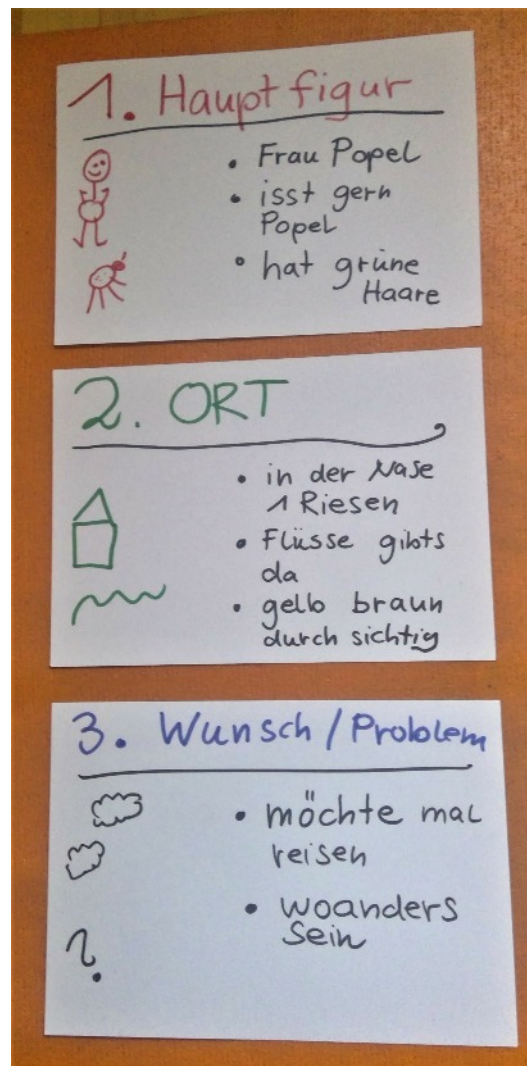 1. Hauptfigur
• Frau Popel
• isst gern
Popel
• hat grüne
Haare
2. ORT
• in der Nase
1 Riesen
• Flüsse gibts
da
• gelb braun
durch sichtig
3. Wunsch / Problem
• möchte mal
reisen
• woanders
sein
?